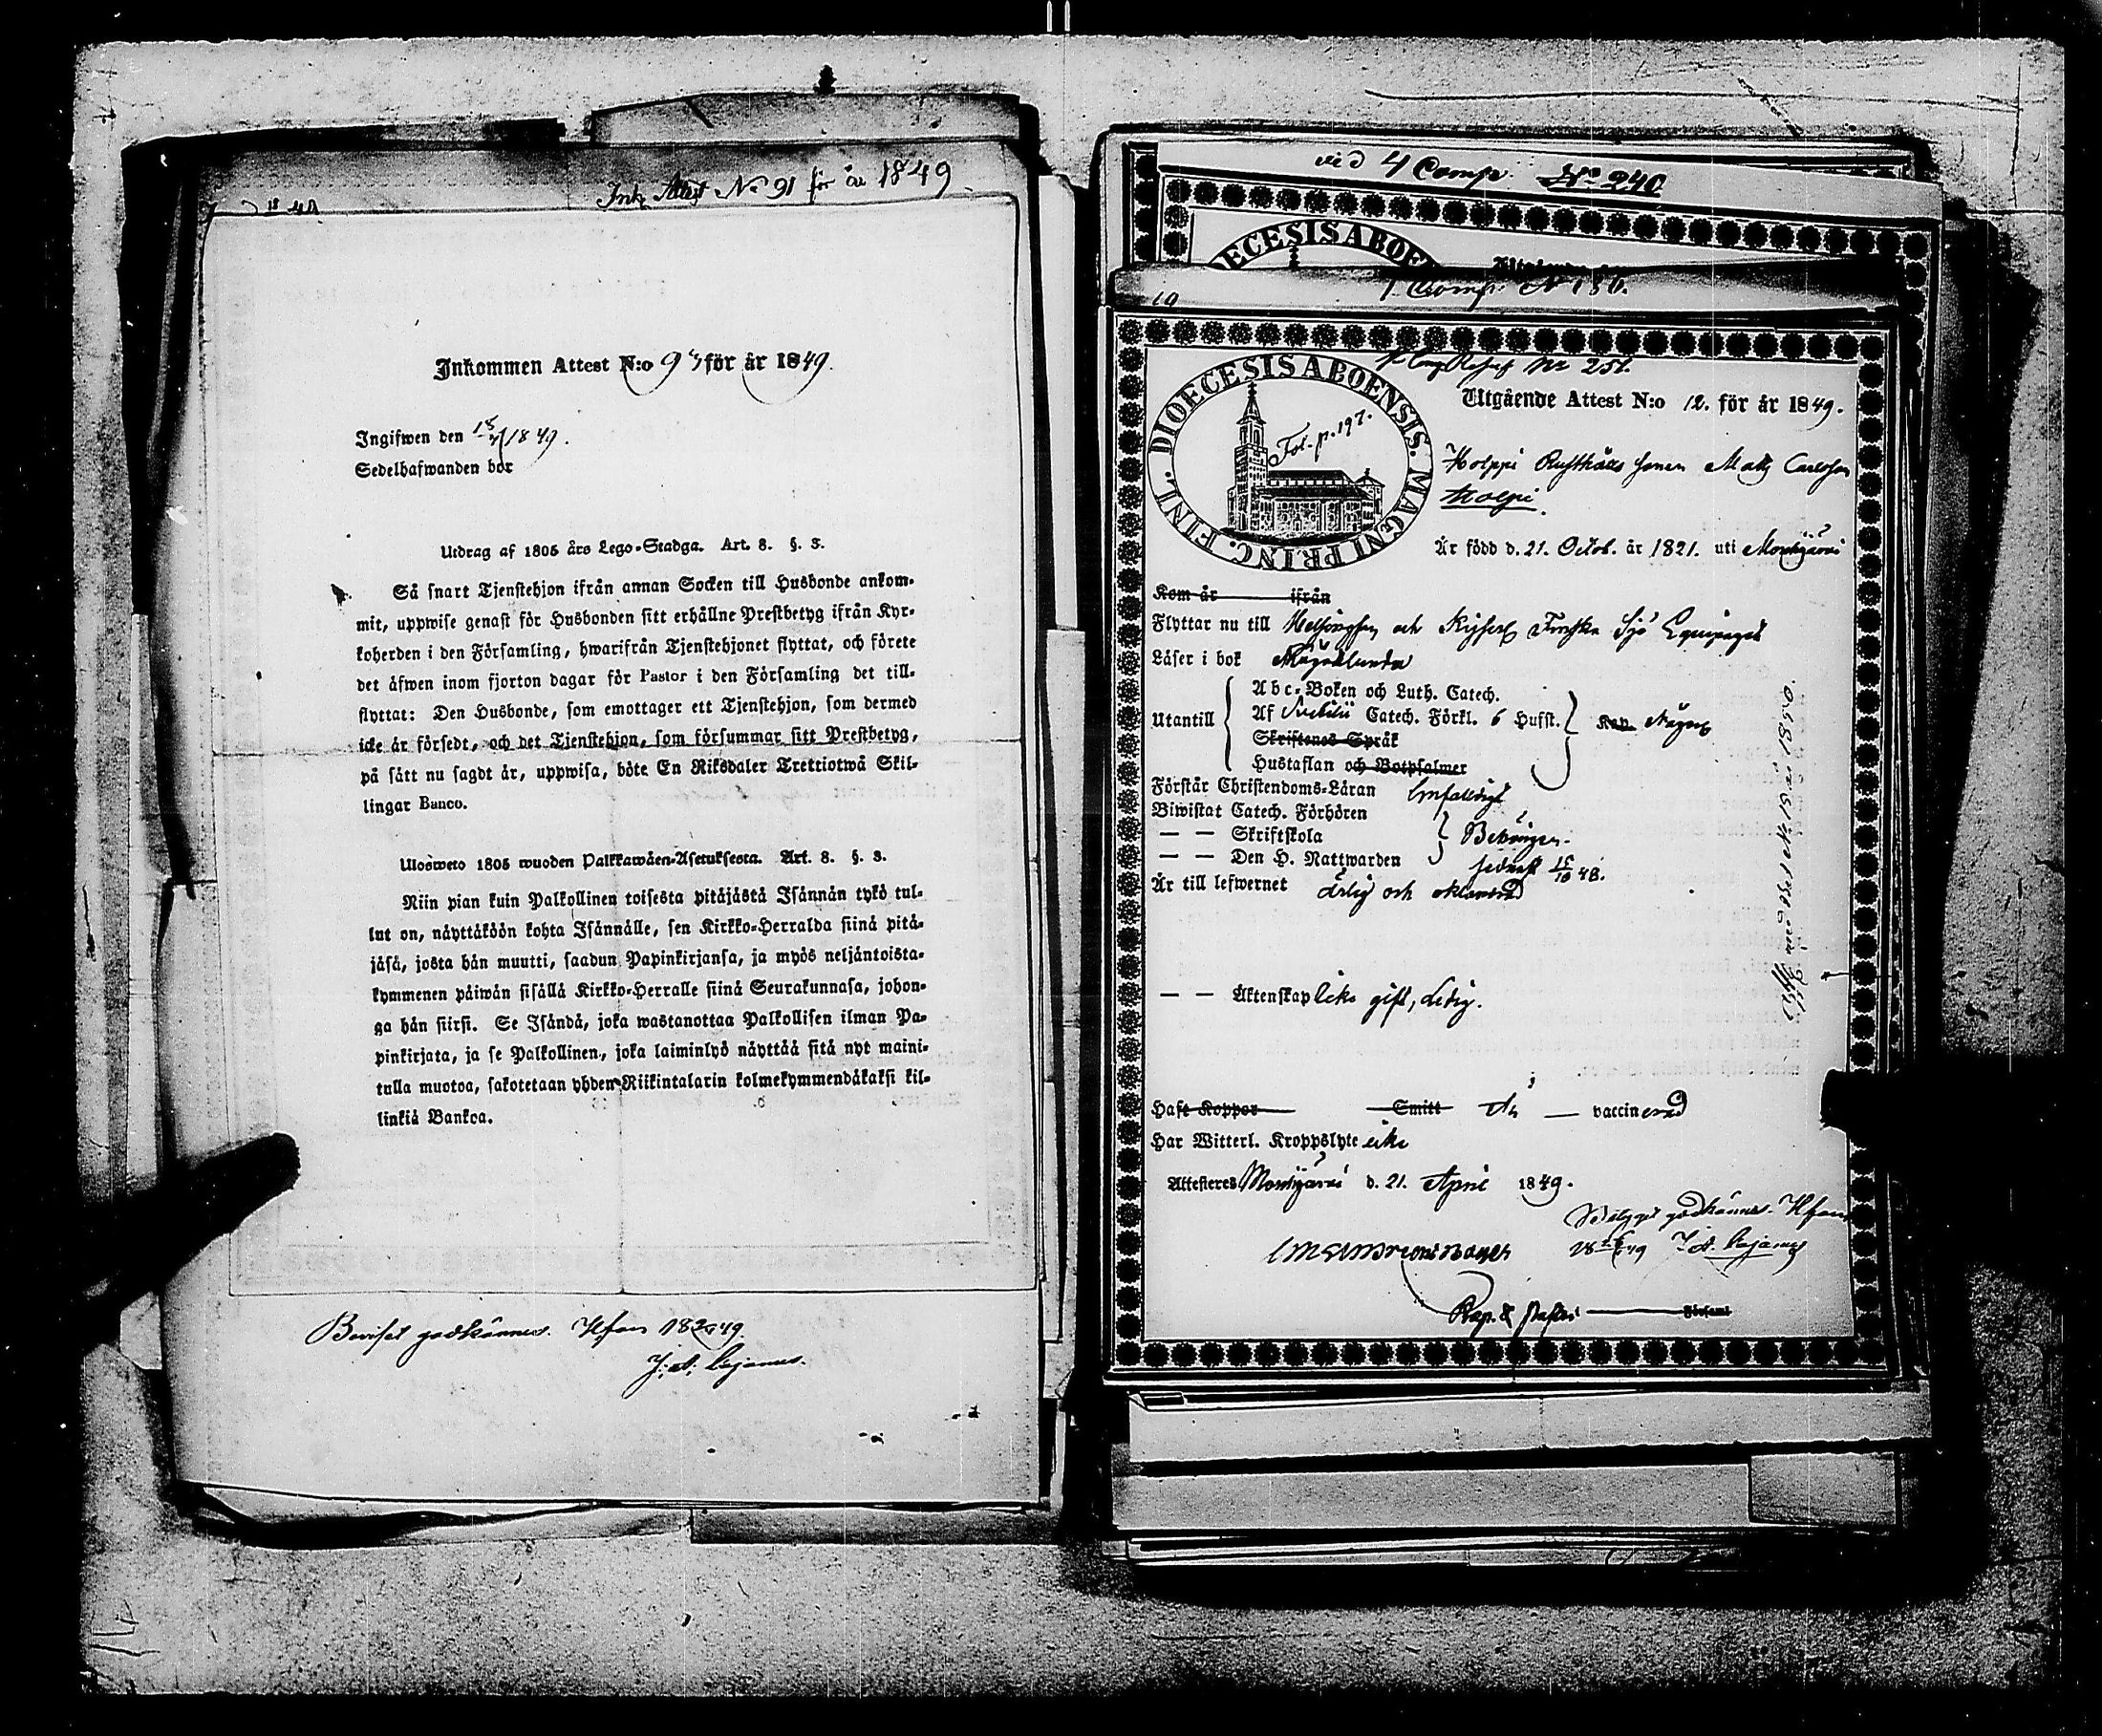 Ink. Attest No 91 för år 1849
Inkommen Attest N:o 9 för år 1849.
Ingifwen den 1849.
Sedelhafwanden bor
Utdrag af 1805 års Lego-Stadga. Art. 8. §. 3.
Så snart Tjenstehjon ifrån annan Socken till Husbonde ankom-
mit, uppwise genast för Husbonden sitt erhållne Prestbetyg ifrån Kyr-
koherden i den Församling, hwarifrån Tjenstehjonet flyttat, och förete
det äfwen inom fjorton dagar för Pastor i den Församling det till-
flyttat: Den Husbonde, som emottager ett Tjenstehjon, som dermed
icke är försedt, och det Tjenstehjon, som försummar sitt Prestbetyg,
på sätt nu sagdt är, uppwisa, böte En Riksdaler Trettiotwå Skil-
lingar Banco.
Ulosweto 1805 wuoden Palkkawäen-Asetuksesta. Art. 8. §. 3.
Niin pian kuin Palkollinen toisesta pitäjästä Isännän tykö tul-
lut on, näyttäköön kohta Isännälle, sen Kirkko-Herralda siinä pitä-
jäsä, josta hän muutti, saadun Papinkirjansa, ja myös neljäntoista-
kymmenen päiwän sisällä Kirkko-Herralle siinä Seurakunnasa, johon-
ga hän siirsi. Se Isändä, joka wastanottaa Palkollisen ilman Pa-
pinkirjata, ja se Palkollinen, joka laiminlyö näyttää sitä nyt maini-
tulla muotoa, sakotetaan yhden Riikintalarin kolmekymmendäkaksi kil-
linkiä Bankoa.
Beviset godkännes. Hfors
J. A. Cajanus.
vid 4 Comp. No 240
DIOECESIS ABOEN
1 Comp. N 180.
19
Nr 251.
DIOECESIS ABOENSIS. MAGNI PRINC. FINL.
Fol. p. 197.
Utgående Attest N:o 12. för år 1849.
Holppi Rusthålls Sonen Matts Carlsson
Holpi.
Är född d. 21. Octob. år 1821. uti Mouhijärvi
Kom år ifrån
Flyttar nu till Helsingfors och Kejserl Finska Sjö Equipaget
Läser i bok
Utantill
Abc-Boken och Luth. Catech.
Af Svebilii Catech. Förkl. 6 Hufst.
Skriftenes Språk
Hustaflan och Botpsalmer
Kan Någorl
Förstår Christendoms-Läran Enfaldigt
Biwistat Catech. Förhören
— — Skriftskola
— — Den H. Nattwarden
Behörigen.
sednast 15/10 48.
Är till lefwernet ärlig och oklandrad
— — Äktenskap icke gift, ledig.
Haft Koppor Smitt Är — vaccinerad
Har Witterl. Kroppslyte icke
Attesteras Mouhijärvi d. 21. April 1849.
Betyget godkännes. Hfors
J. A. Cajanus
Kap. &
Församl